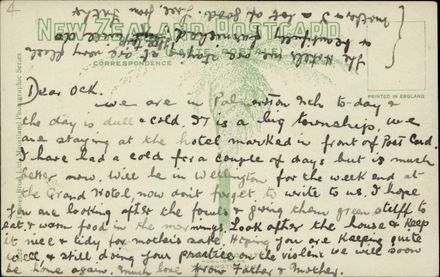 4
NEW ZEALAND POSTCARD
CORRESPONDENCE
PRINTED IN ENGLAND
Photographic Series
The Hotels we are staying at are very flash
& beautifully furnished
mother & a lot of good. Love from Father
Dear Ock.
we are in Palmerston Nth to-day &
the day is dull & cold. It is a big township, we
are staying at the hotel marked in front of Post Card.
I have had a cold for a couple of days but is much
better now. Will be in Wellington for the week end at
the Grand Hotel now don't forget to write to us. I hope
you are looking after the fowls & giving them green stuff to
eat & warm food in the mornings. Look after the house & keep
it nice & tidy for mothers sake. Hoping you are keeping quite
well & still doing your practice on the violent we will soon
be home again. Much love from Father & Mother.